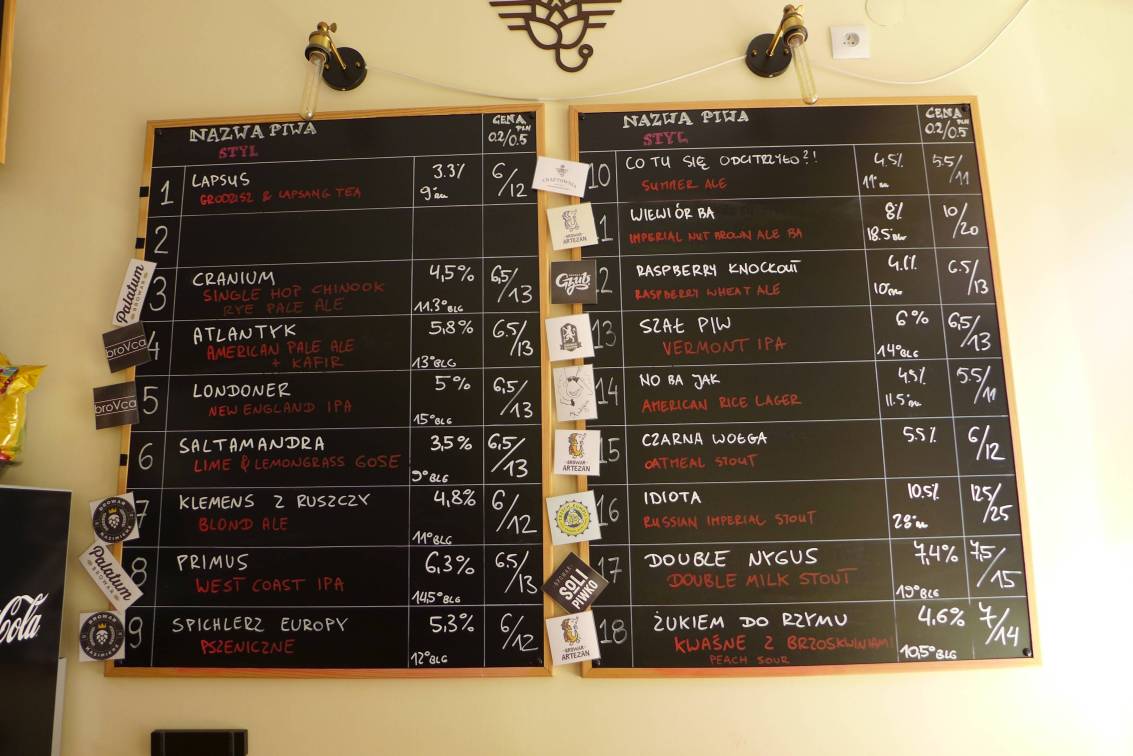 NAZWA PIWA
STYL
CENA PLN
0.2/0.5
1 LAPSUS 3.3% 6/12
GRODZISZ & LAPSANG TEA 9°BLG
2
3 CRANIUM 4,5% 6,5/13
SINGLE HOP CHINOOK
RYE PALE ALE 11.3°BLG
4 ATLANTYK 5,8% 6.5/13
AMERICAN PALE ALE
+ KAFIR 13°BLG
5 LONDONER 5% 6,5/13
NEW ENGLAND IPA 15°BLG
6 SALTAMANDRA 3,5% 6,5/13
LIME & LEMONGRASS GOSE 9°BLG
7 KLEMENS Z RUSZCZY 4,8% 6/12
BLOND ALE 11°BLG
8 PRIMUS 6,3% 6.5/13
WEST COAST IPA 14,5°BLG
9 SPICHLERZ EUROPY 5,3% 6/12
PSZENICZNE 12°BLG
Palatum
BROWAR
broVca
broVca
BROWAR
KAZIMIERZ
Palatum
BROWAR
BROWAR
KAZIMIERZ
Cola
NAZWA PIWA
STYL
CENA PLN
0.2/0.5
10 CO TU SIĘ ODCITRZYŁO?! 4.5% 5.5/11
SUMMER ALE 11°BLG
11 WIEWIÓR BA 8% 10/20
IMPERIAL NUT BROWN ALE BA 18.5°BLG
12 RASPBERRY KNOCKOUT 6.5/13
RASPBERRY WHEAT ALE 10°BLG
13 SZAŁ PIW 6% 6,5/13
VERMONT IPA 14°BLG
14 NO BA JAK 4.5% 5.5/11
AMERICAN RICE LAGER 11.5°BLG
15 CZARNA WOŁGA 5.5% 6/12
OATMEAL STOUT
16 IDIOTA 10.5% 12.5/25
RUSSIAN IMPERIAL STOUT 28°BLG
17 DOUBLE NYGUS 7,4% 7,5/15
DOUBLE MILK STOUT 19°BLG
18 ŻUKIEM DO RZYMU 4,6% 7/14
KWAŚNE Z BRZOSKWINIAMI!
PEACH SOUR 10,5°BLG
CRAFTOWNIA
BROWAR
ARTEZAN
Gzub
BROWAR
ARTEZAN
BROWAR
SOLI
PIWKO
BROWAR
ARTEZAN